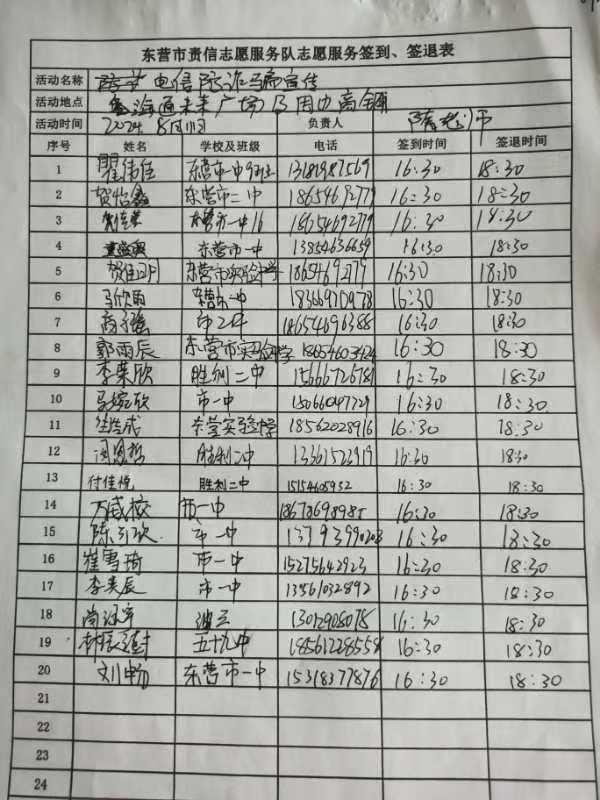 东营市责信志愿服务队志愿服务签到、签退表
活动名称 电信防诈骗宣传
活动地点 海通未来广场及周边商铺
活动时间 2024 8月11日 负责人 陈 师
序号 姓名 学校及班级 电话 签到时间 签退时间
1 翟伟佳 东营市一中 13181987569 16:30 18:30
2 贺怡鑫 东营市二中 18654692779 16:30 18:30
3 东营市一中16 18654692779 16:30 18:30
4 东营市一中 13854636659 16:30 18:30
5 贺佳玥 东营市实验中学 18654692779 16:30 18:30
6 马欣雨 一中 18366970978 16:30 18:30
7 市二中 18654696388 16:30 18:30
8 郭雨辰 东营市实验中学 18654603424 16:30 18:30
9 李荣欣 胜利二中 15666726789 16:30 18:30
10 市一中 15066047729 16:30 18:30
11 东营实验中学 18562028916 16:30 18:30
12 闫恩哲 胜利二中 13361522919 16:30 18:30
13 付佳悦 胜利二中 15154605932 16:30 18:30
14 万威校 市一中 18678698985 16:30 18:30
15 陈 市一中 16:30 18:30
16 崔雪琦 市一中 15275642923 16:30 18:30
17 李奕辰 市一中 13561032892 16:30 18:30
18 尚 13012908078 16:30 18:30
19 五十九中 18561228558 16:30 18:30
20 刘畅 东营市一中 15318377876 16:30 18:30
21
22
23
24